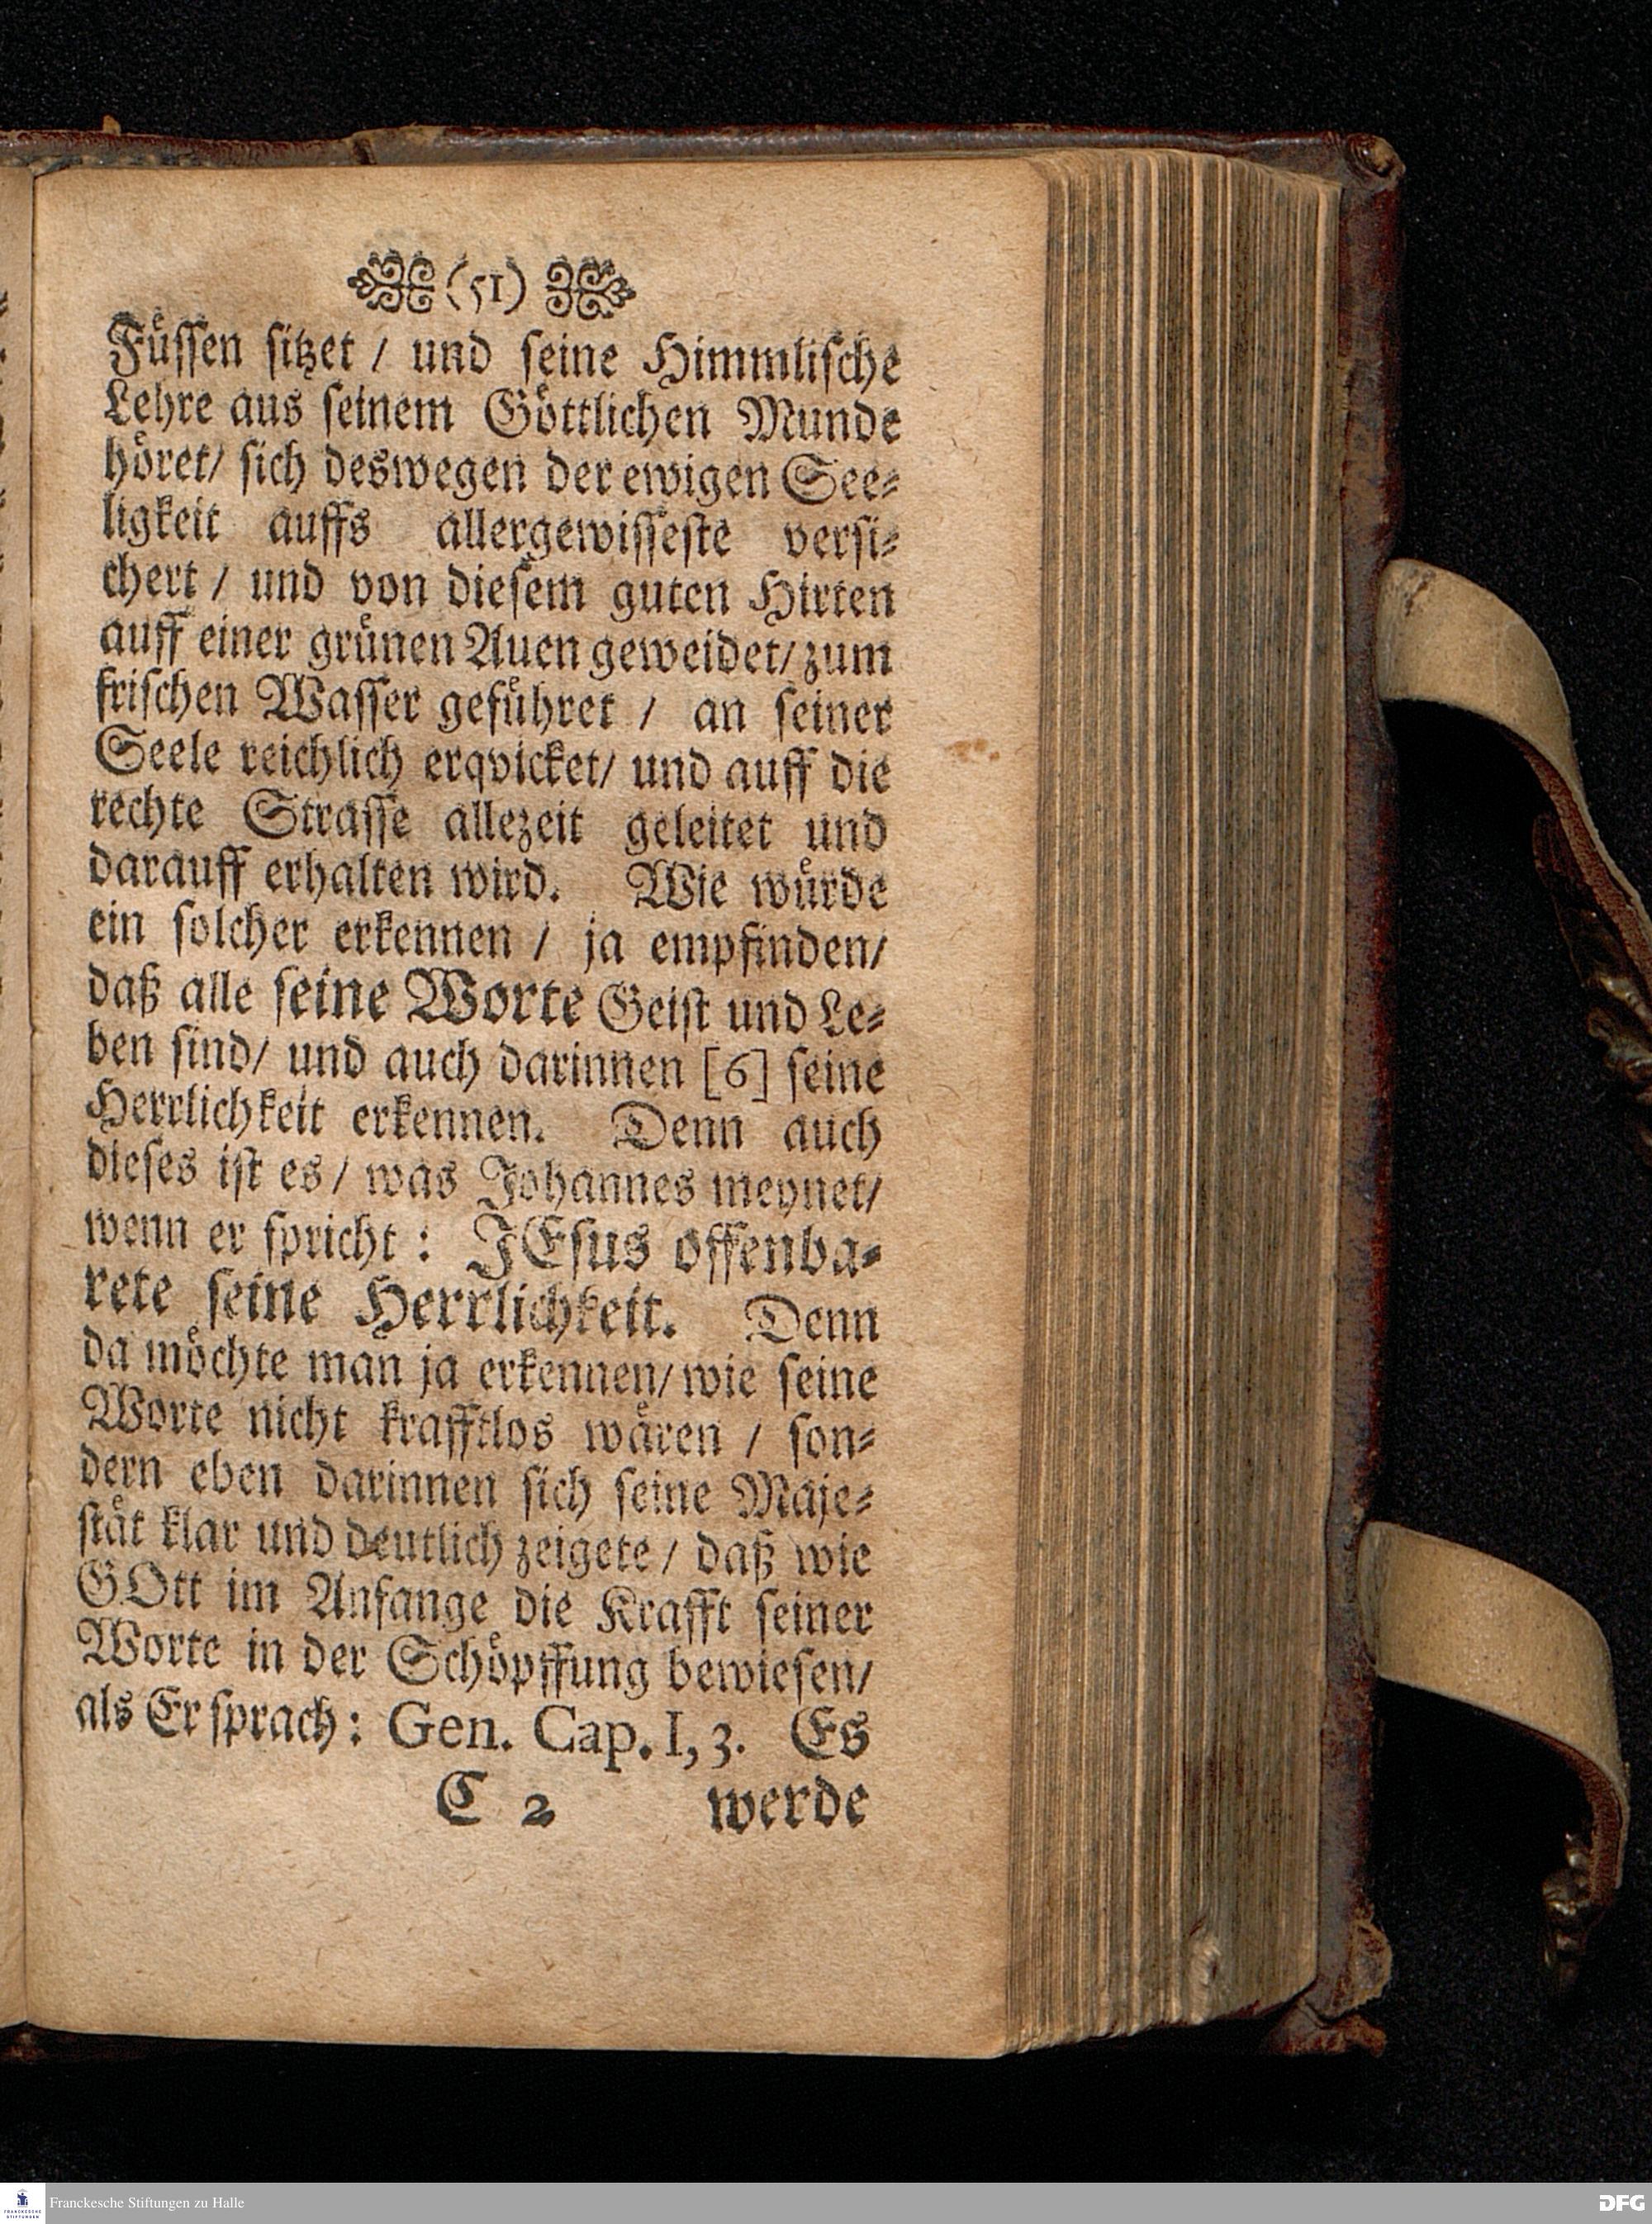 (51)
Füssen sitzet / und seine Himmlische
Lehre aus seinem Göttlichen Munde
höret/ sich deswegen der ewigen See-
ligkeit auffs allergewisseste versi-
chert / und von diesem guten Hirten
auff einer grünen Auen geweidet/ zum
frischen Wasser geführet / an seiner
Seele reichlich erqvicket/ und auff die
rechte Strasse allezeit geleitet und
darauff erhalten wird. Wie würde
ein solcher erkennen / ja empfinden/
daß alle seine Worte Geist und Le-
ben sind/ und auch darinnen [6] seine
Herrlichkeit erkennen. Denn auch
dieses ist es/ was Johannes meynet/
wenn er spricht: JEsus offenba-
rete seine Herrlichkeit. Denn
da möchte man ja erkennen/ wie seine
Worte nicht krafftlos wären / son-
dern eben darinnen sich seine Maje-
stät klar und deutlich zeigete / daß wie
GOtt im Anfange die Krafft seiner
Worte in der Schöpffung bewiesen/
als Er sprach: Gen. Cap. I, 3. Es
C 2 werde
Franckesche Stiftungen zu Halle
FRANCKESCHE STIFTUNGEN
DFG